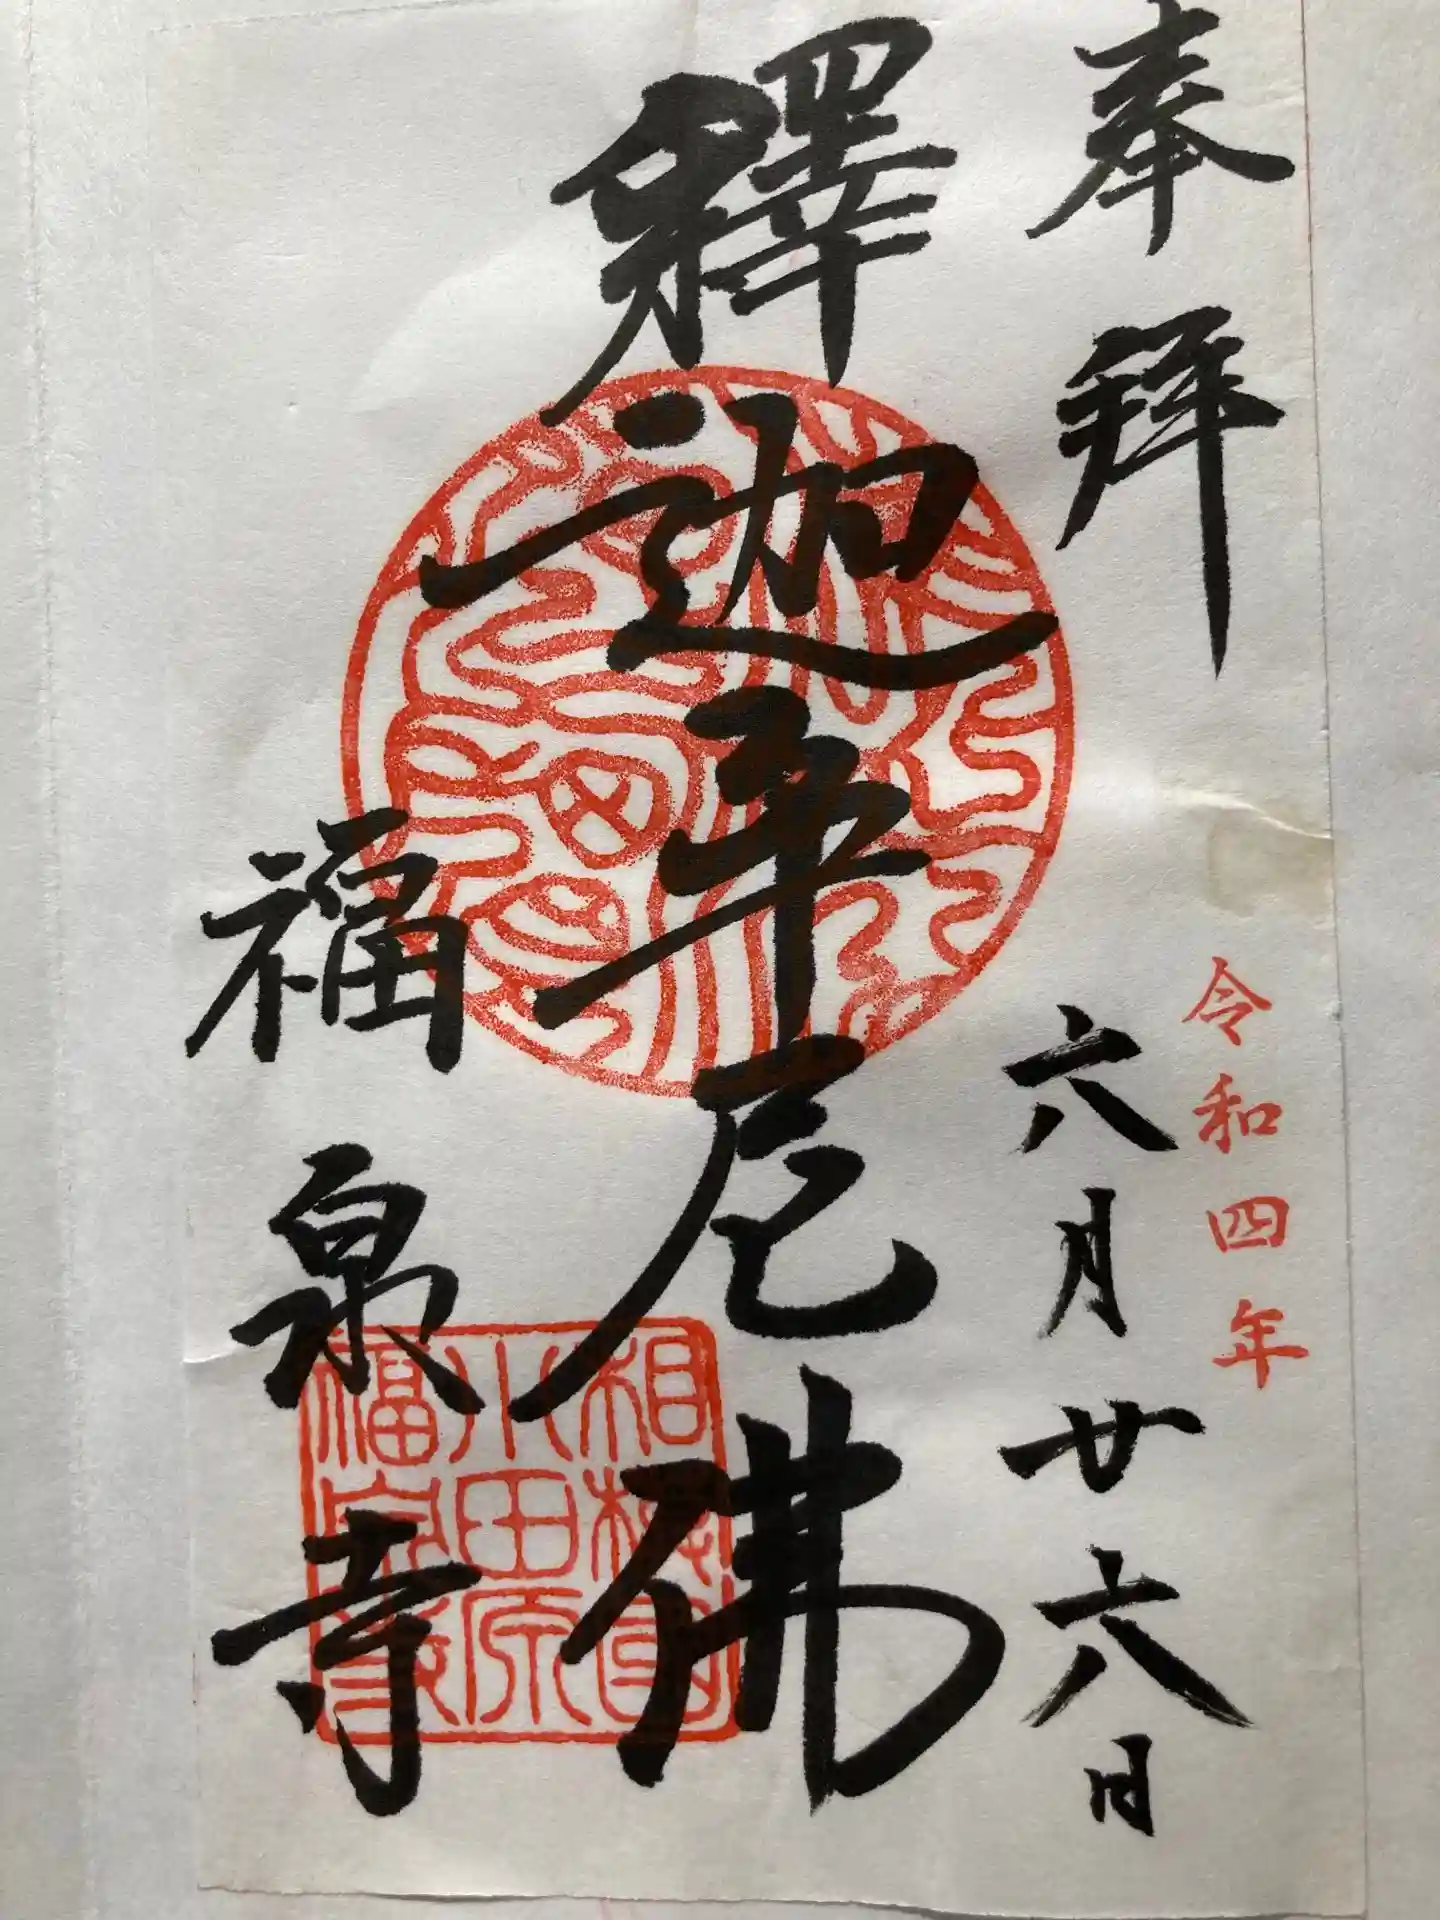 奉拜
令和四年
六月廿六日
釋迦牟尼佛
福泉寺
相模国
小田原
福泉寺